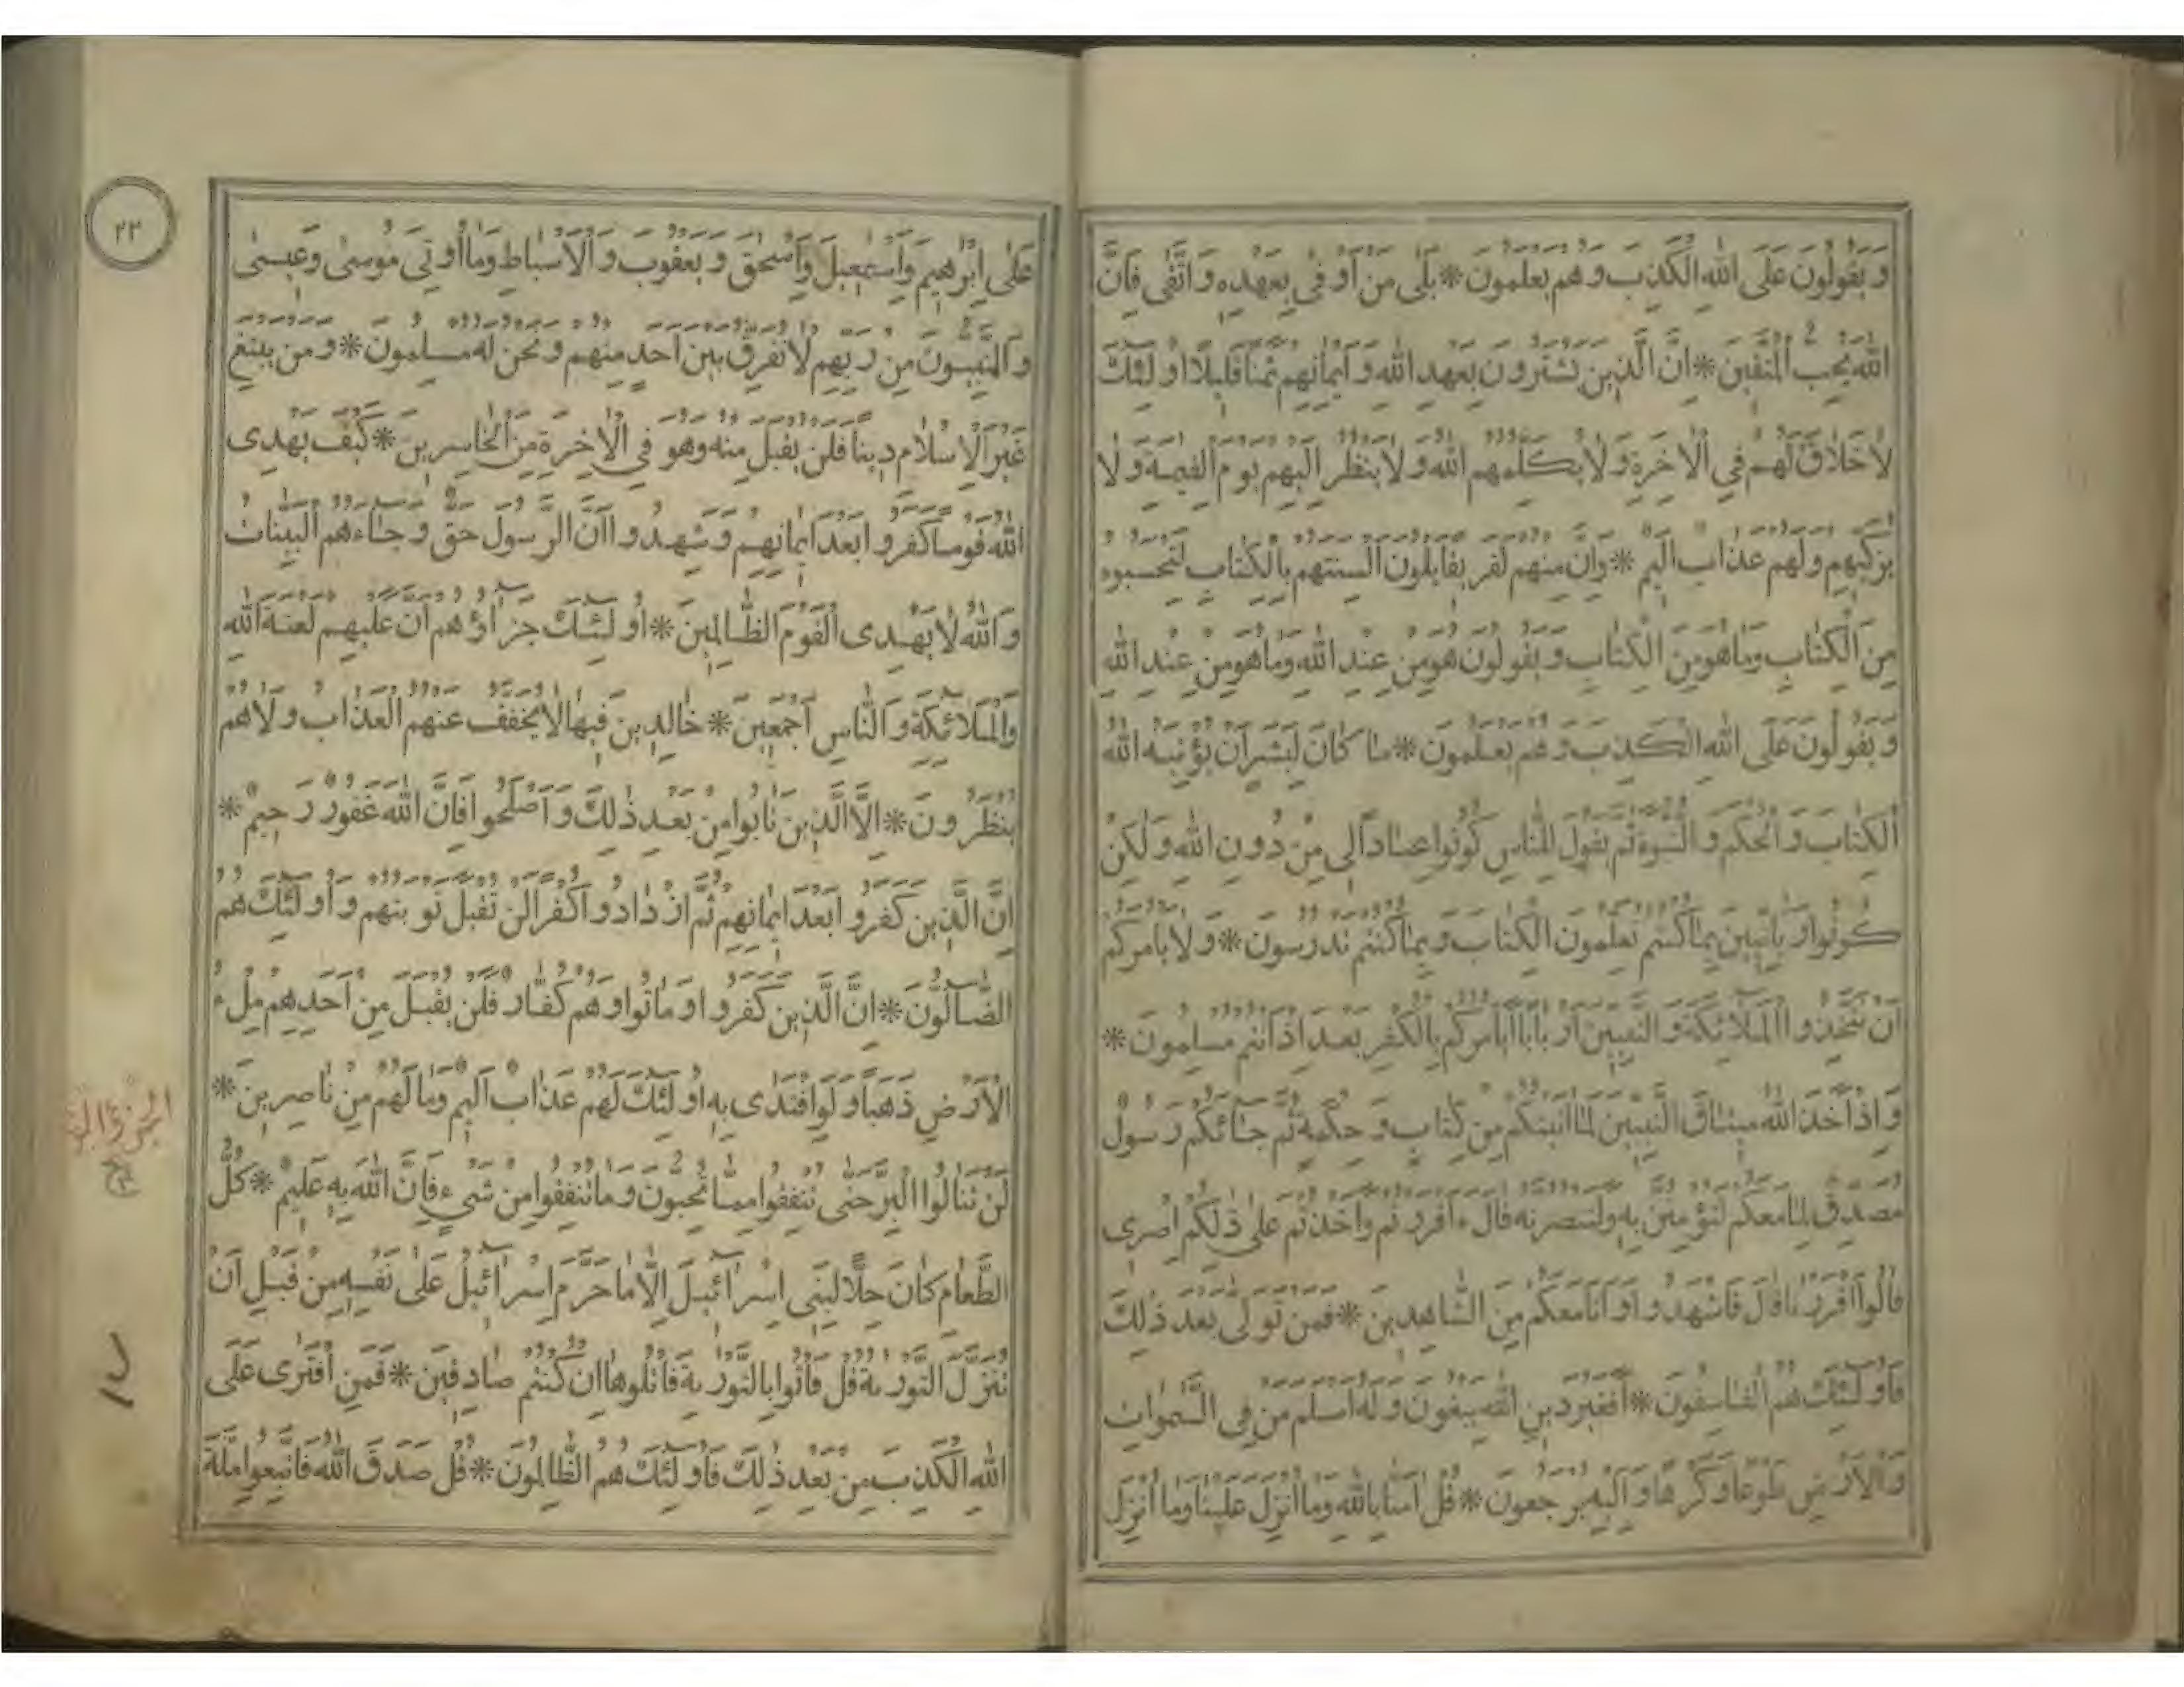 وَيَقُولُونَ عَلَى اللهِ الْكَذِبَ وَهُمْ يَعْلَمُونَ * بَلٰى مَنْ اَوْفٰى بِعَهْدِهِ وَاتَّقٰى فَاِنَّ
اللهَ يُحِبُّ الْمُتَّقِينَ * اِنَّ الَّذِينَ يَشْتَرُونَ بِعَهْدِ اللهِ وَاَيْمَانِهِمْ ثَمَنًا قَلِيلًا اُولٰئِكَ
لَا خَلَاقَ لَهُمْ فِي الْاٰخِرَةِ وَلَا يُكَلِّمُهُمُ اللهُ وَلَا يَنْظُرُ اِلَيْهِمْ يَوْمَ الْقِيٰمَةِ وَلَا
يُزَكِّيهِمْ وَلَهُمْ عَذَابٌ اَلِيمٌ * وَاِنَّ مِنْهُمْ لَفَرِيقًا يَلْوُنَ اَلْسِنَتَهُمْ بِالْكِتَابِ لِتَحْسَبُوهُ
مِنَ الْكِتَابِ وَمَا هُوَ مِنَ الْكِتَابِ وَيَقُولُونَ هُوَ مِنْ عِنْدِ اللهِ وَمَا هُوَ مِنْ عِنْدِ اللهِ
وَيَقُولُونَ عَلَى اللهِ الْكَذِبَ وَهُمْ يَعْلَمُونَ * مَا كَانَ لِبَشَرٍ اَنْ يُؤْتِيَهُ اللهُ
الْكِتَابَ وَالْحُكْمَ وَالنُّبُوَّةَ ثُمَّ يَقُولَ لِلنَّاسِ كُونُوا عِبَادًا لِى مِنْ دُونِ اللهِ وَلٰكِنْ
كُونُوا رَبَّانِيِّينَ بِمَا كُنْتُمْ تُعَلِّمُونَ الْكِتَابَ وَبِمَا كُنْتُمْ تَدْرُسُونَ * وَلَا يَاْمُرَكُمْ
اَنْ تَتَّخِذُوا الْمَلَائِكَةَ وَالنَّبِيِّينَ اَرْبَابًا اَيَاْمُرُكُمْ بِالْكُفْرِ بَعْدَ اِذْ اَنْتُمْ مُسْلِمُونَ *
وَاِذْ اَخَذَ اللهُ مِيثَاقَ النَّبِيِّينَ لَمَا اٰتَيْتُكُمْ مِنْ كِتَابٍ وَحِكْمَةٍ ثُمَّ جَائَكُمْ رَسُولٌ
مُصَدِّقٌ لِمَا مَعَكُمْ لَتُؤْمِنُنَّ بِهِ وَلَتَنْصُرُنَّهُ قَالَ ءَاَقْرَرْتُمْ وَاَخَذْتُمْ عَلٰى ذٰلِكُمْ اِصْرِى
قَالُوا اَقْرَرْنَا قَالَ فَاشْهَدُوا وَاَنَا مَعَكُمْ مِنَ الشَّاهِدِينَ * فَمَنْ تَوَلّٰى بَعْدَ ذٰلِكَ
فَاُولٰئِكَ هُمُ الْفَاسِقُونَ * اَفَغَيْرَ دِينِ اللهِ يَبْغُونَ وَلَهُ اَسْلَمَ مَنْ فِى السَّمٰوَاتِ
وَالْاَرْضِ طَوْعًا وَكَرْهًا وَاِلَيْهِ يُرْجَعُونَ * قُلْ اٰمَنَّا بِاللهِ وَمَا اُنْزِلَ عَلَيْنَا وَمَا اُنْزِلَ
٢٣
عَلٰى اِبْرٰهِيمَ وَاِسْمٰعِيلَ وَاِسْحٰقَ وَيَعْقُوبَ وَالْاَسْبَاطِ وَمَا اُوتِىَ مُوسٰى وَعِيسٰى
وَالنَّبِيُّونَ مِنْ رَبِّهِمْ لَا نُفَرِّقُ بَيْنَ اَحَدٍ مِنْهُمْ وَنَحْنُ لَهُ مُسْلِمُونَ * وَمَنْ يَبْتَغِ
غَيْرَ الْاِسْلَامِ دِينًا فَلَنْ يُقْبَلَ مِنْهُ وَهُوَ فِي الْاٰخِرَةِ مِنَ الْخَاسِرِينَ * كَيْفَ يَهْدِى
اللهُ قَوْمًا كَفَرُوا بَعْدَ اِيمَانِهِمْ وَشَهِدُوا اَنَّ الرَّسُولَ حَقٌّ وَجَاءَهُمُ الْبَيِّنَاتُ
وَاللهُ لَا يَهْدِى الْقَوْمَ الظَّالِمِينَ * اُولٰئِكَ جَزَاؤُهُمْ اَنَّ عَلَيْهِمْ لَعْنَةَ اللهِ
وَالْمَلَائِكَةِ وَالنَّاسِ اَجْمَعِينَ * خَالِدِينَ فِيهَا لَا يُخَفَّفُ عَنْهُمُ الْعَذَابُ وَلَا هُمْ
يُنْظَرُونَ * اِلَّا الَّذِينَ تَابُوا مِنْ بَعْدِ ذٰلِكَ وَاَصْلَحُوا فَاِنَّ اللهَ غَفُورٌ رَحِيمٌ *
اِنَّ الَّذِينَ كَفَرُوا بَعْدَ اِيمَانِهِمْ ثُمَّ ازْدَادُوا كُفْرًا لَنْ تُقْبَلَ تَوْبَتُهُمْ وَاُولٰئِكَ هُمُ
الضَّالُّونَ * اِنَّ الَّذِينَ كَفَرُوا وَمَاتُوا وَهُمْ كُفَّارٌ فَلَنْ يُقْبَلَ مِنْ اَحَدِهِمْ مِلْءُ
الْاَرْضِ ذَهَبًا وَلَوِ افْتَدٰى بِهِ اُولٰئِكَ لَهُمْ عَذَابٌ اَلِيمٌ وَمَا لَهُمْ مِنْ نَاصِرِينَ *
لَنْ تَنَالُوا الْبِرَّ حَتّٰى تُنْفِقُوا مِمَّا تُحِبُّونَ وَمَا تُنْفِقُوا مِنْ شَىْءٍ فَاِنَّ اللهَ بِهِ عَلِيمٌ * كُلُّ
الطَّعَامِ كَانَ حِلًّا لِبَنِى اِسْرَائِيلَ اِلَّا مَا حَرَّمَ اِسْرَائِيلُ عَلٰى نَفْسِهِ مِنْ قَبْلِ اَنْ
تُنَزَّلَ التَّوْرٰيةُ قُلْ فَاْتُوا بِالتَّوْرٰيةِ فَاتْلُوهَا اِنْ كُنْتُمْ صَادِقِينَ * فَمَنِ افْتَرٰى عَلَى
اللهِ الْكَذِبَ مِنْ بَعْدِ ذٰلِكَ فَاُولٰئِكَ هُمُ الظَّالِمُونَ * قُلْ صَدَقَ اللهُ فَاتَّبِعُوا مِلَّةَ